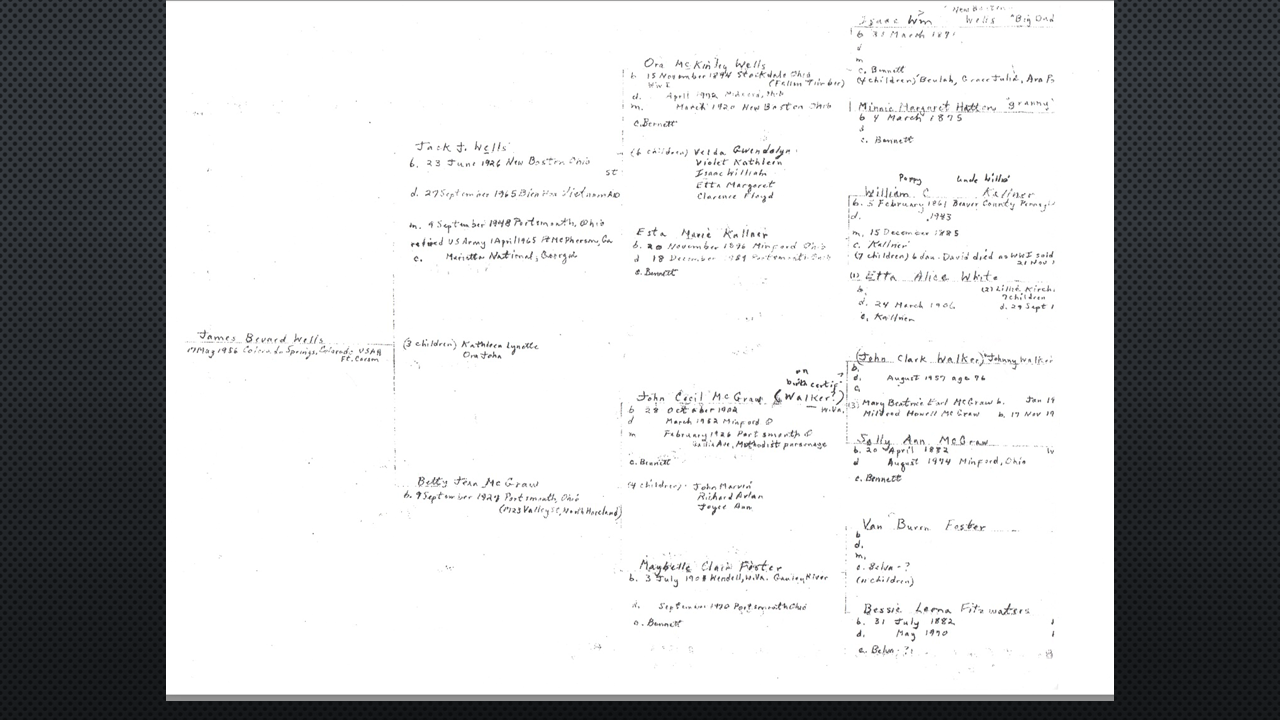 James Bevard Wells
17 May 1956 Colorado Springs, Colorado USAH
Ft. Carson
Jack J. Wells
b. 23 June 1926 New Boston Ohio
st
d. 27 September 1965 Bien Hoa Vietnam
m. 9 September 1948 Portsmouth, Ohio
retired US Army 1 April 1965 Ft McPherson, Ga
c. Marietta National, Georgia
(3 children) Kathleen Lynette
Ora John
Betty Jean McGraw
b. 9 September 1927 Portsmouth, Ohio
(1723 Valley St, North Moreland)
Ora McKinley Wells
b. 15 November 1894 Stockdale Ohio
WWI (Fallen Timber)
d. April 1972 Ohio
m. March 1920 New Boston Ohio
c. Bennett
(6 children) Velda Gwendolyn
Violet Kathleen
Isaac William
Etta Margaret
Clarence Floyd
Esta Marie Kallner
b. 20 November 1896 Minford Ohio
d 18 December Portsmouth Ohio
c. Bennett
on
birth certif
John Cecil McGraw (Walker?)
W.Va.
b 28 October 1902
d March 1982 Minford O
m February 1926 Portsmouth O
Gallia Ave, Methodist parsonage
c. Bennett
(4 children) John Marvin
Richard Arlan
Joyce Ann
Maybelle Clair Foster
b. 3 July 1908 Wendell, W.Va. Gauley River
d. September 1970 Portsmouth Ohio
c. Bennett
New Boston
Isaac Wm Wells "Big Dad
b 31 March
d
m
c. Bennett
(4 children) Beulah, Grace Julia, Ara
Minnie Margaret Hatten "granny"
b 4 March 1875
c. Bennett
Poppy Uncle Willie
William C Kallner
b. 5 February 1861 Beaver County
d. 1943
m. 15 December 1885
c. Kallner
(7 children) 6 dau. David died as WWI sold
21 Nov 1
(1) Etta Alice White
b. (2) Lillie Kirch
7 children
d. 24 March 1906 d. 29 Sept 1
c, Kallner
(John Clark Walker) "Johnny Walker
b.
d. August 1957 age 76
c,
(3) Mary Beatrice Earl McGraw b. Jan 19
Mildred Howell McGraw b. 17 Nov 19
Sally Ann McGraw
b. 20 April 1882
d August 1974 Minford, Ohio
c. Bennett
Van Buren Foster
b
d.
m,
c. Belva - ?
(11 children)
Bessie Lorna Fitzwatser
b. 31 July 1882
d. May 1970
c. Belva - ?